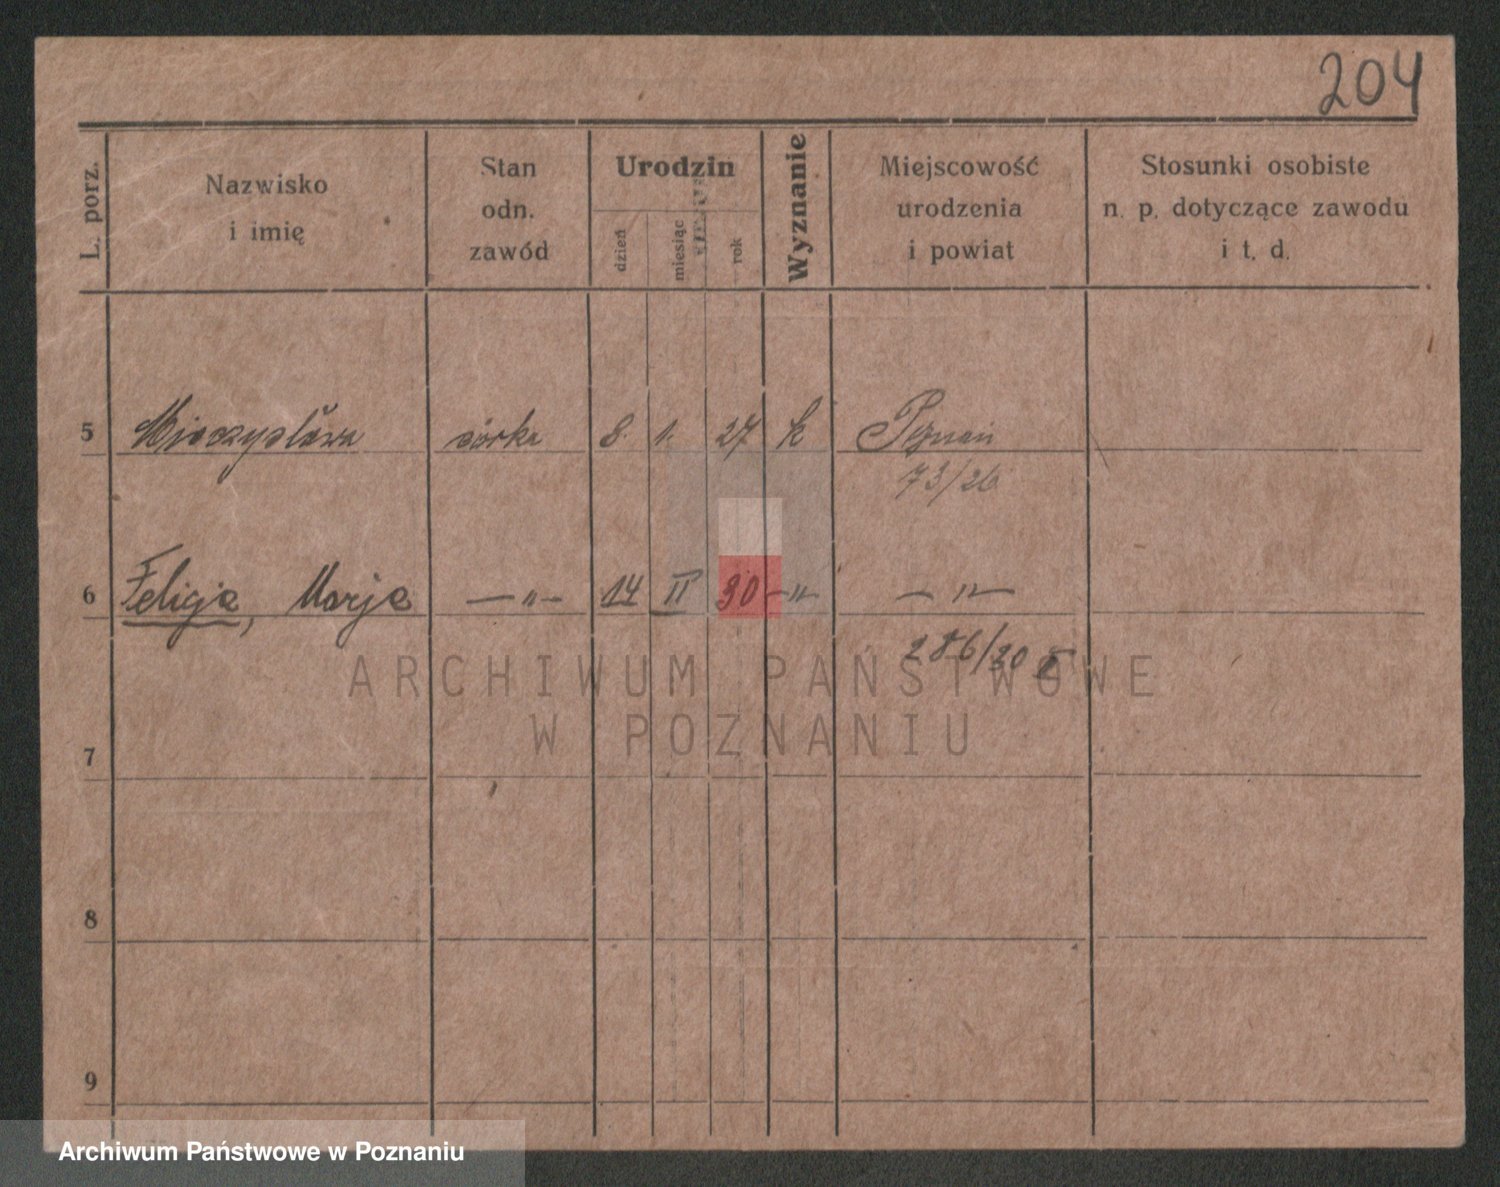 204
L. porz.
Nazwisko
i imię
Stan
odn.
zawód
Urodzin
dzień
miesiąc
rok
Wyznanie
Miejscowość
urodzenia
i powiat
Stosunki osobiste
n. p. dotyczące zawodu
i t. d.
5 Mieczysława córka 8. 1. 27 k Poznań
73/26
6 Felicja, Marja —„— 14 II 30 —„— —„—
286/30
7
8
9
ARCHIWUM PAŃSTWOWE
W POZNANIU
Archiwum Państwowe w Poznaniu